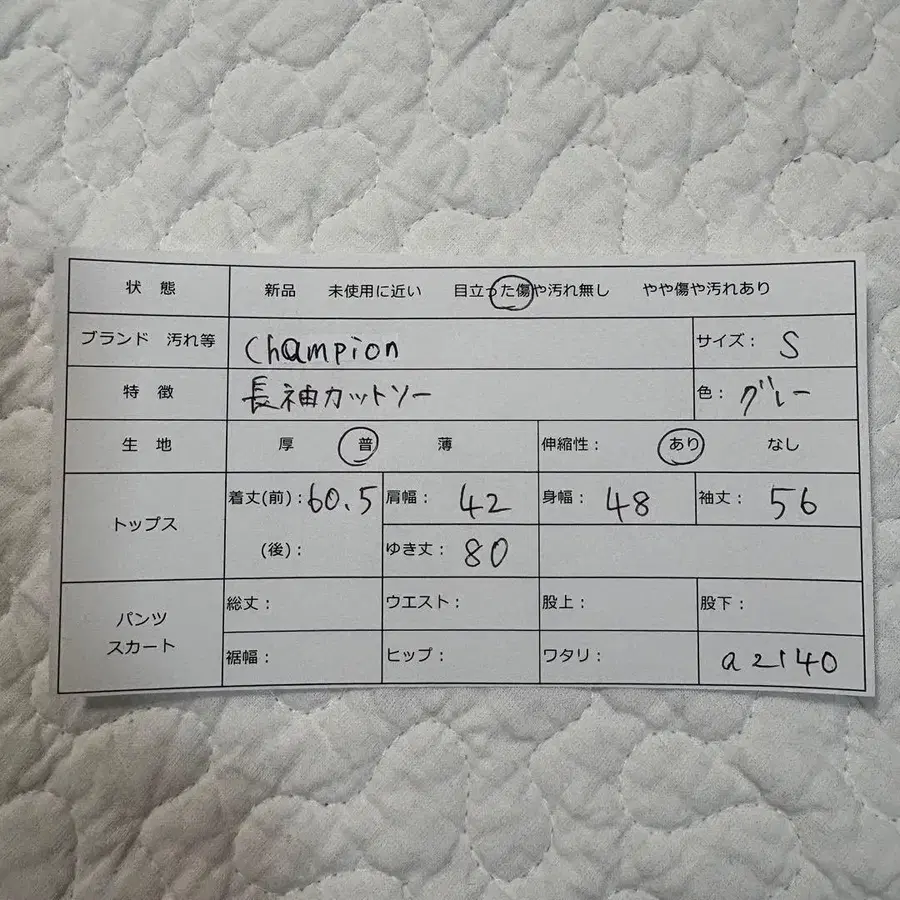 状 態 新品 未使用に近い 目立った傷や汚れ無し やや傷や汚れあり
ブランド 汚れ等 Champion サイズ： S
特 徴 長袖カットソー 色： グレー
生 地 厚 普 薄 伸縮性： あり なし
トップス 着丈(前)： 60.5 肩幅： 42 身幅： 48 袖丈： 56
(後)： ゆき丈： 80
パンツ スカート 総丈： ウエスト： 股上： 股下：
裾幅： ヒップ： ワタリ： a2140